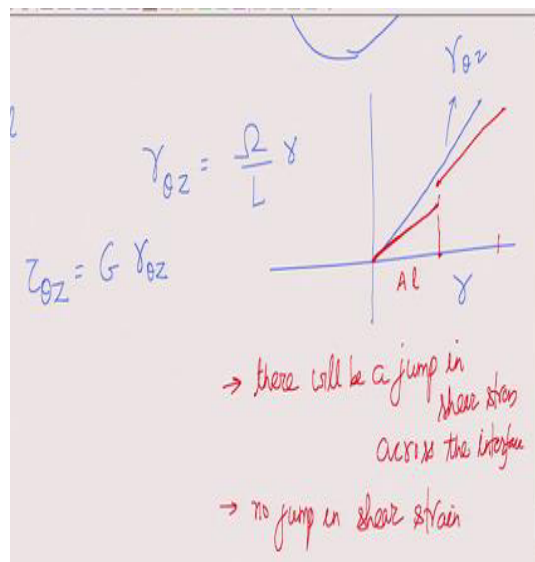 γθz
γθz = Ω/L r
τθz = G γθz
Al
r
→ there will be a jump in
shear stress
across the interface
→ no jump in shear strain